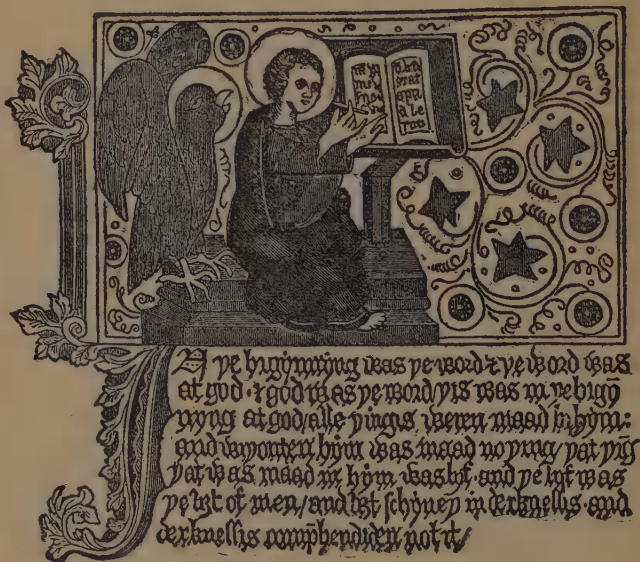 IN þe bigynnyng was þe word & þe word was
at god · & god was þe word/ þis was in þe bigyn̄
nyng at god/ alle þingis weren maad bi hym:
and wiþouten hym was maad no þing/ þat þing
þat was maad in hym was lyf · and þe lyf was
þe liȝt of men/ and liȝt schyneþ in derknessis · and
derknessis comp̄hendiden not it/